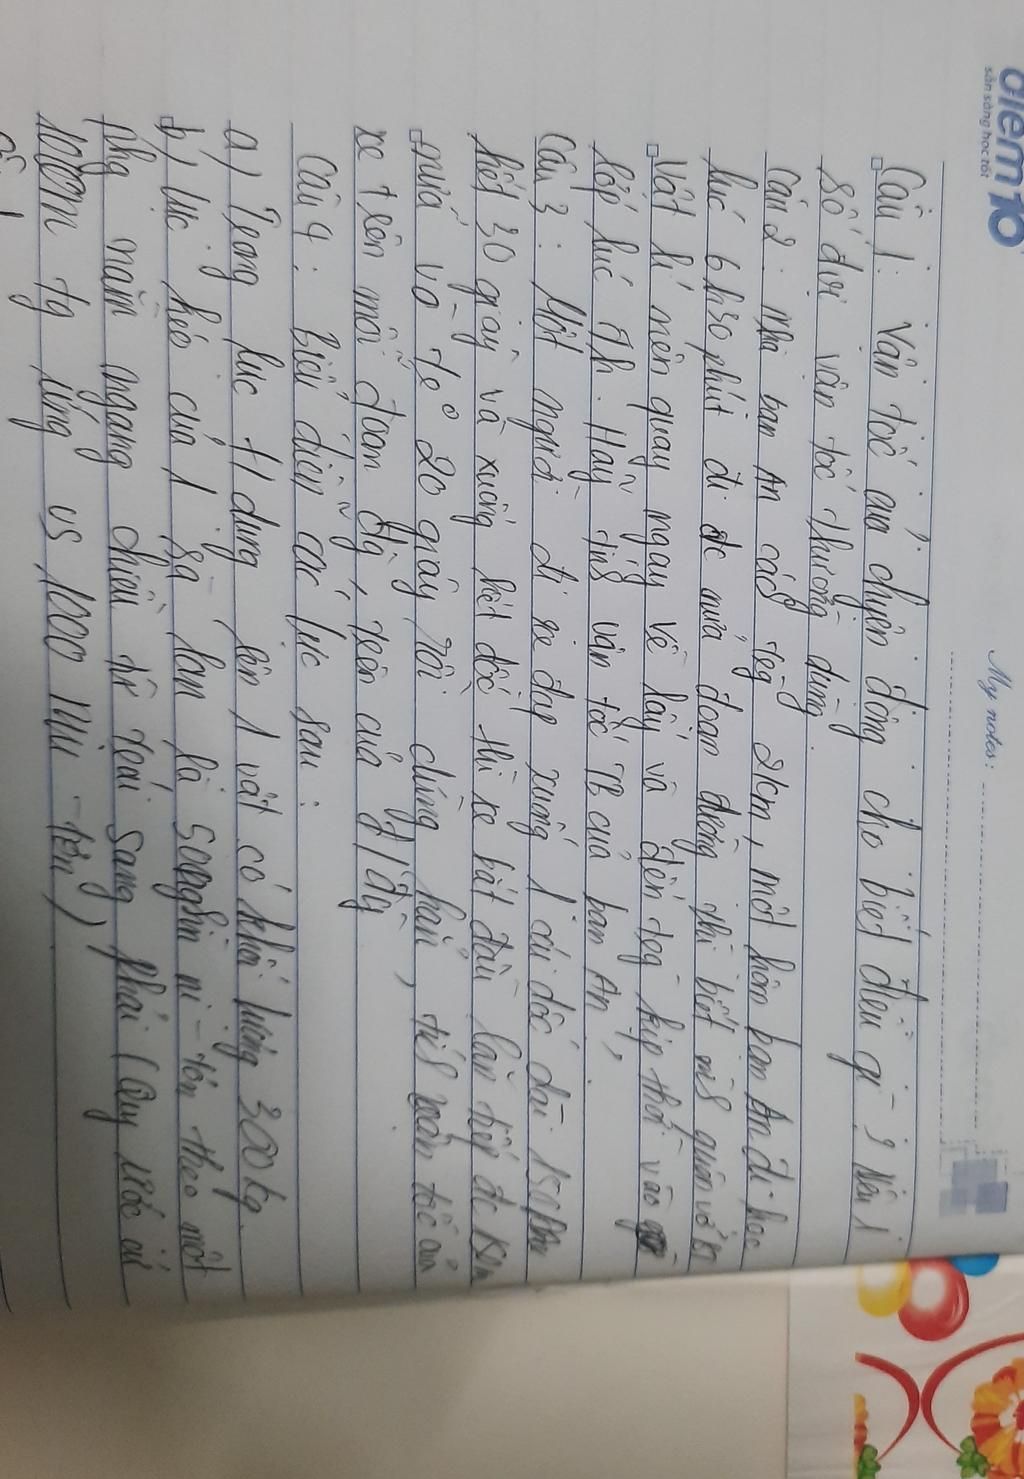 điểm 10
sẵn sàng học tốt
My notes:
Câu 1: Vận tốc của chuyển động cho biết điều gì? Nêu 1
số đơn vị vận tốc thường dùng.
Câu 2: Nhà bạn An cách trg 2km, một hôm bạn An đi học
lúc 6h30 phút đi đc nửa đoạn đường thì biết mis quên vở BT
Vật lí nên quay ngay về lấy và đến trg kịp thời vào
lớp lúc 7h. Hãy tính vận tốc TB của bạn An?
Câu 3: Một người đi xe đạp xuống 1 cái dốc dài 150m
hết 30 giây và xuống hết dốc thì xe bắt đầu lăn tiếp đc
nữa và 20 giây rồi dừng hẳn, tính vận tốc của
xe trên mỗi đoạn đg, trên cả q/đg
Câu 4: Biểu diễn các lực sau:
a) Trọng lực t/dụng lên 1 vật có khối lượng 300kg.
b) Lực kéo của 1 sà lan là nghìn niu-tơn theo một
phg nằm ngang chiều từ trái sang phải (Quy ước cứ
tg ứng vs 1000 Niu-tơn)